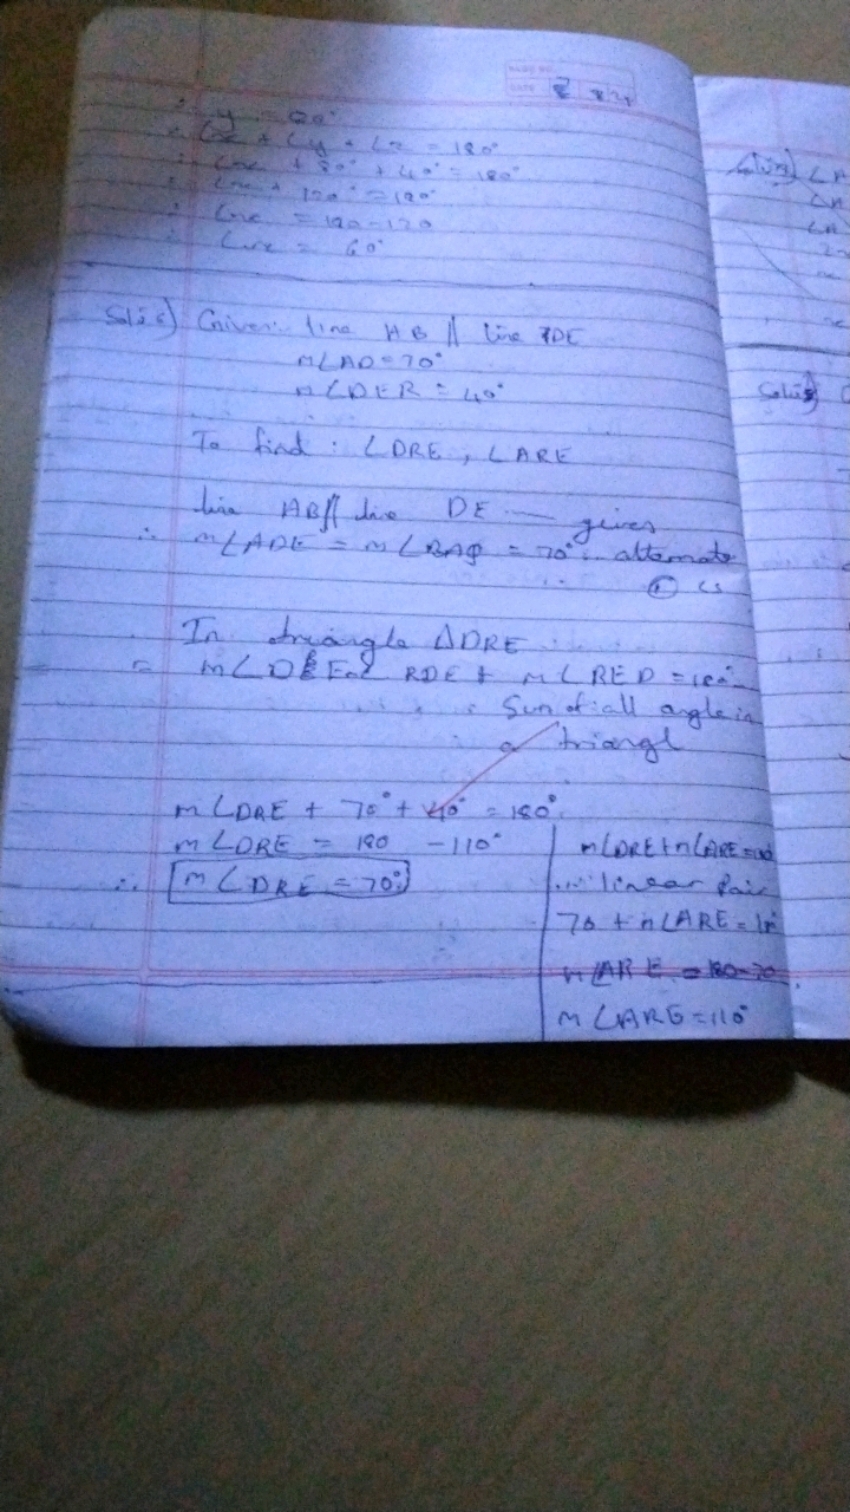 ∴ y = 80°
∴ ∠x + ∠y + ∠z = 180°
∴ ∠x + 80° + 40° = 180°
∴ ∠x + 120° = 180°
∴ ∠x = 180-120
∴ ∠x = 60°
Given: line AB // line DE
m∠AD=70°
m∠DER = 40°
To find : ∠DRE , ∠ARE
line AB // line DE — gives
∴ m∠ADE = m∠BAD = 70° alternate
∠s
In triangle ΔDRE
RDE + m∠RED = 180
Sum of all angle in
a triangl
m∠DRE + 70° + 40° = 180°
m∠DRE = 180 -110°
∴ m∠DRE = 70°
m∠DRE+m∠ARE=180
linear Pair
70 + m∠ARE = 180
m∠ARE = 180-70
m∠ARE=110°
∠A